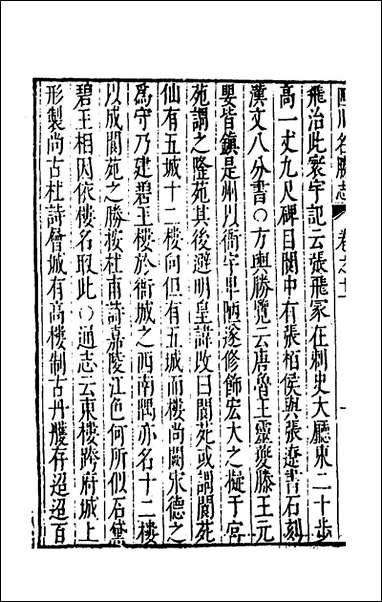 四川名勝志 卷之十一 一
飛治此寰宇記云張飛冢在刺史大廳東二十步
高一丈九尺碑目閬中有張桓侯與張遼書石刻
漢文八分書○方輿勝覽云唐魯王靈夔滕王元
嬰皆鎮是州以衙宇卑陋遂修飾宏大之擬于宮
苑謂之隆苑其後避明皇諱改曰閬苑或謂閬苑
仙有五城十二樓向但有五城而樓尚闕宋德之
為守乃建碧玉樓於衙城之西南隅亦名十二樓
以成閬苑之勝按杜甫詩嘉陵江色何所似石黛
碧玉相因依樓名取此○通志云東樓跨府城上
形製尚古杜詩曾城有高樓制古丹雘存迢迢百